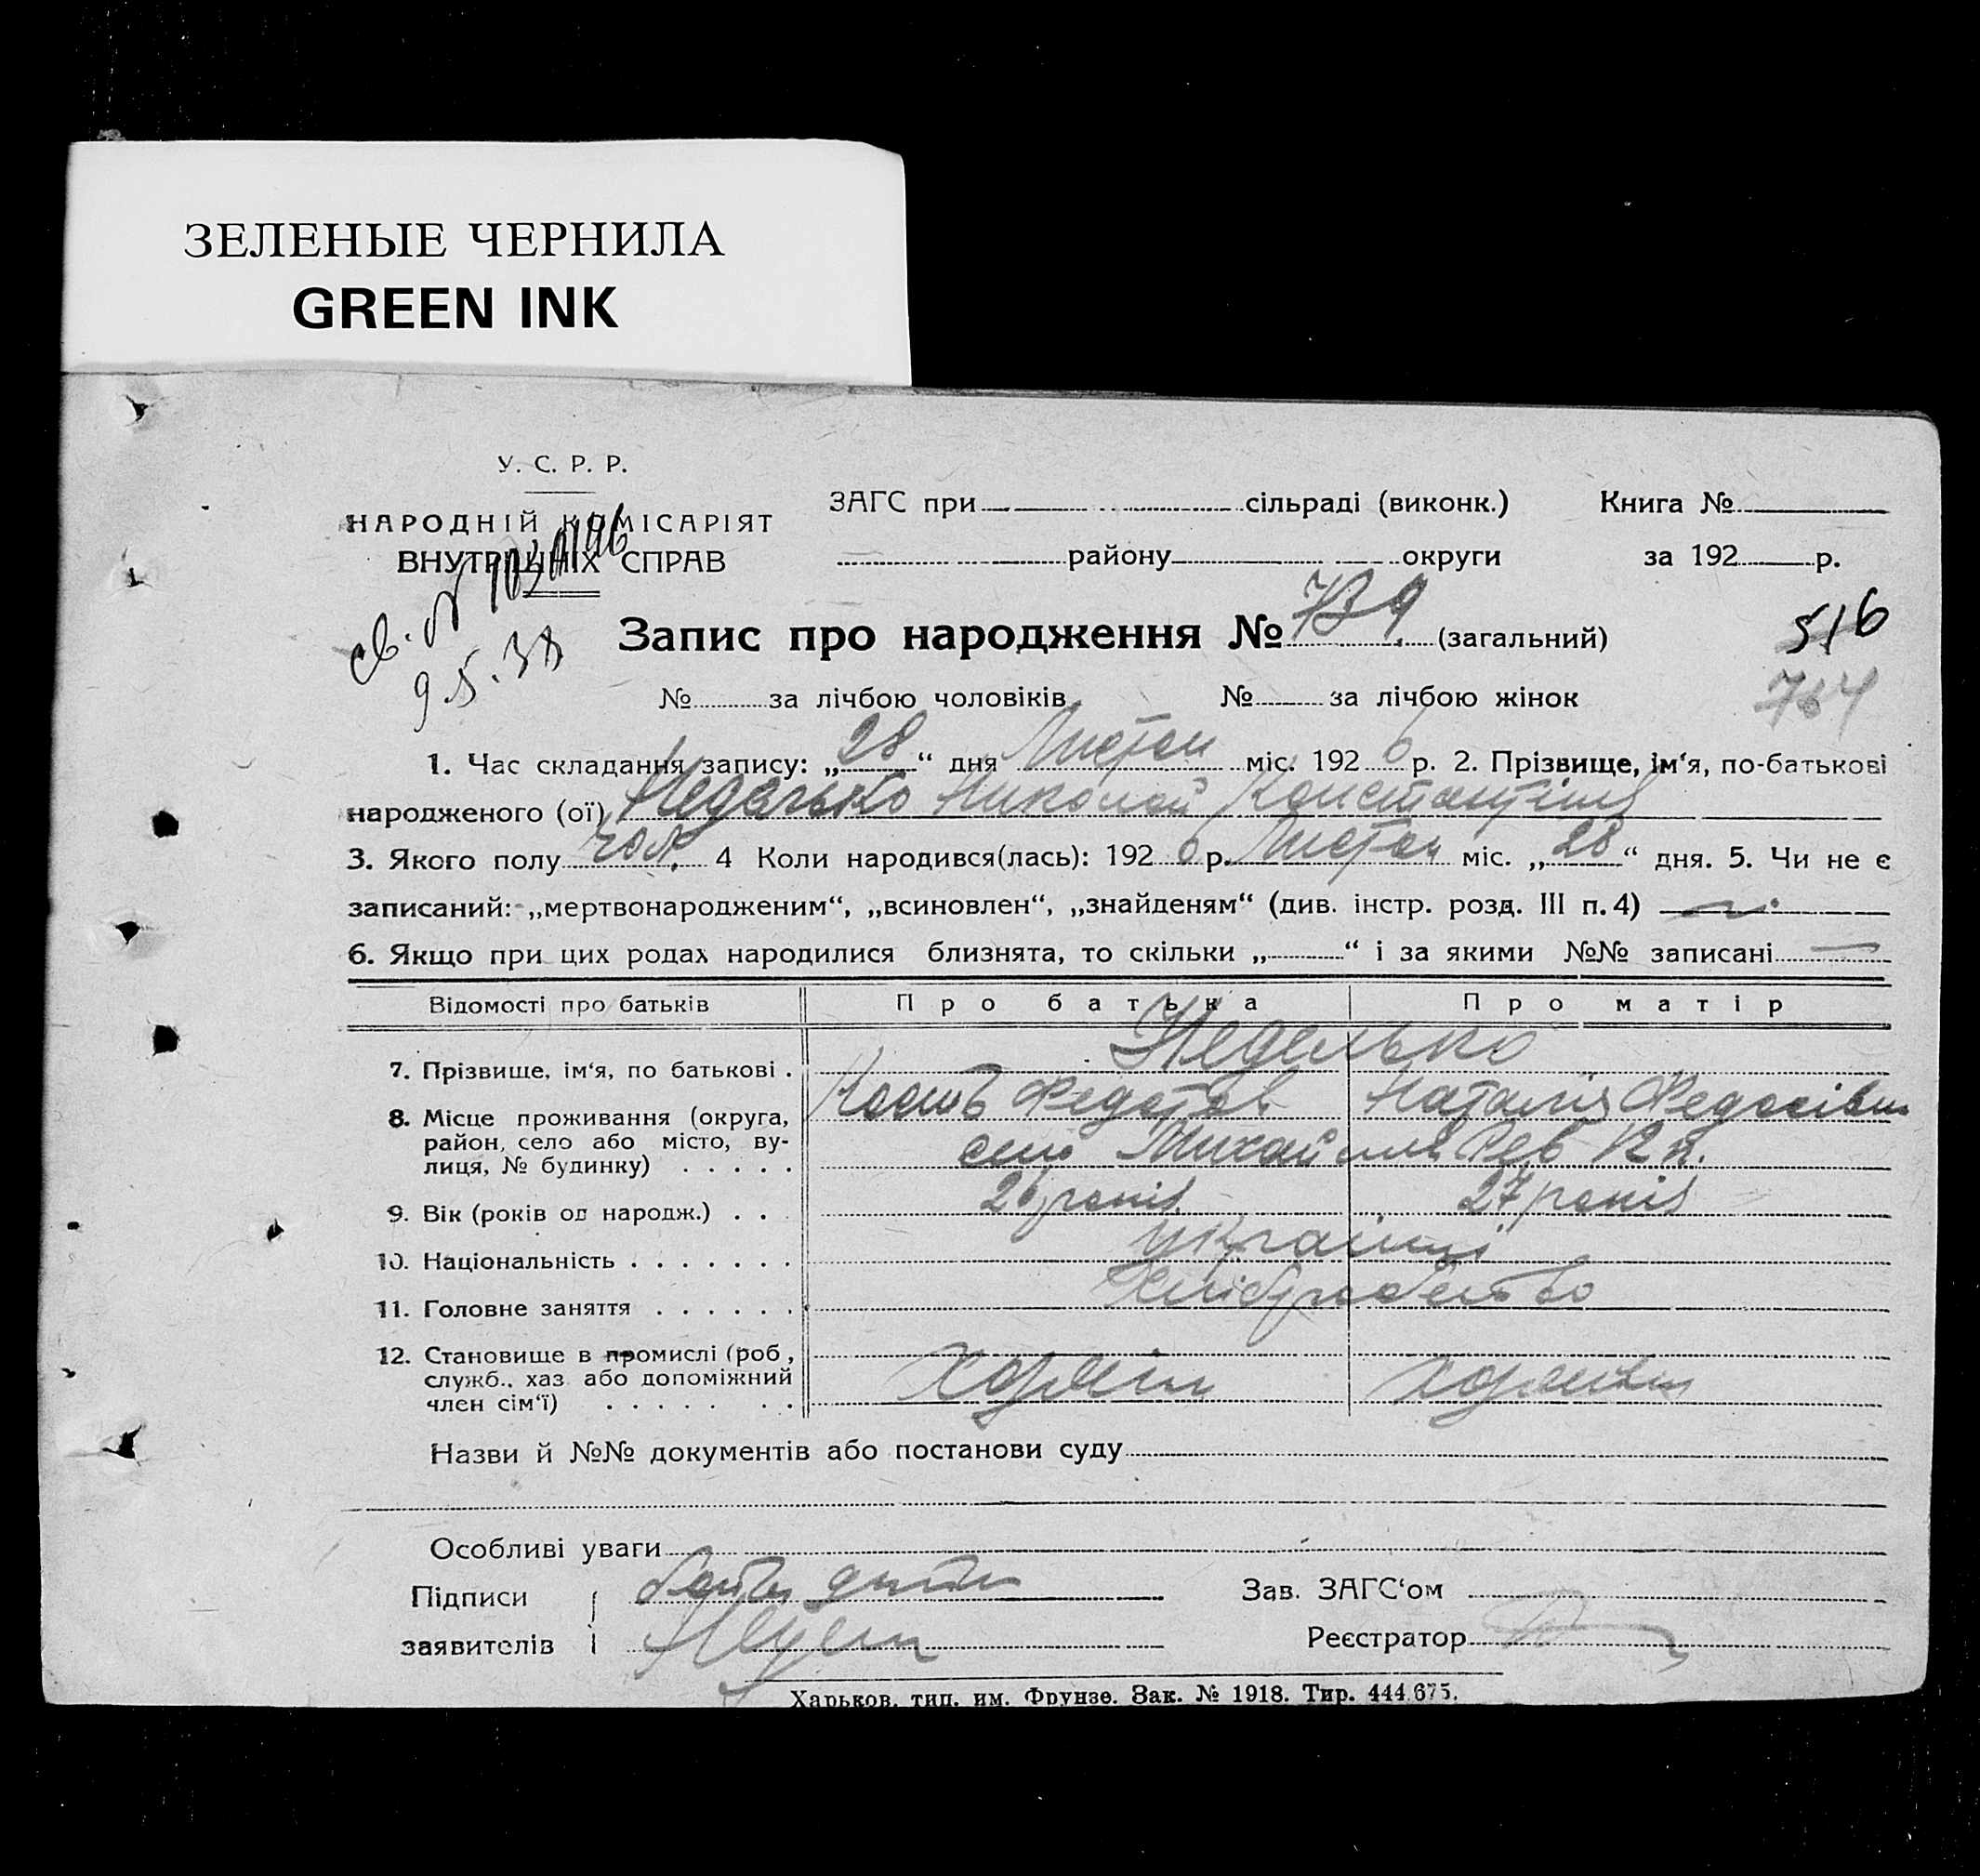 ЗЕЛЕНЫЕ ЧЕРНИЛА
GREEN INK
У. С. Р. Р.
НАРОДНІЙ КОМІСАРІЯТ
ВНУТРІШНІХ СПРАВ
ЗАГС при сільраді (виконк.) Книга №
району округи за 192 р.
св. №
9.5.38
Запис про народження № 739 (загальний) 516
№ за лічбою чоловіків № за лічбою жінок 764
1. Час складання запису: „28“ дня Листоп міс. 1926 р. 2. Прізвище, ім‘я, по-батькові
народженого (ої) Неделько Николай
3. Якого полу чол. 4 Коли народився(лась): 1926 р. Листоп міс. „28“ дня. 5. Чи не є
записаний: „мертвонародженим“, „всиновлен“, „знайденям“ (див. інстр. розд. III п. 4)
6. Якщо при цих родах народилися близнята, то скільки „ “ і за якими №№ записані —
Відомості про батьків Про батька Про матір
7. Прізвище, ім‘я, по батькові . Неделько
Кость Федотов Наталія Федосівна
8. Місце проживання (округа, район, село або місто, вулиця, № будинку) . . . . . село
9. Вік (років од народж.) . . 26 років 27 років
10. Національність . . . . . . . українці
11. Головне заняття . . . . . . Хліборобство
12. Становище в промислі (роб., служб., хаз. або допоміжний член сім‘ї) . . . . . . .
Назви й №№ документів або постанови суду
Особливі уваги
Підписи Зав. ЗАГС‘ом
заявителів Реєстратор
Харьков, тип. им. Фрунзе. Зак. № 1918. Тир. 444.675.